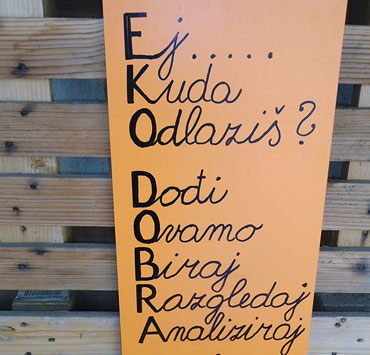 Ej.....
Kuda
Odlaziš?
Dođi
Ovamo
Biraj
Razgledaj
Analiziraj